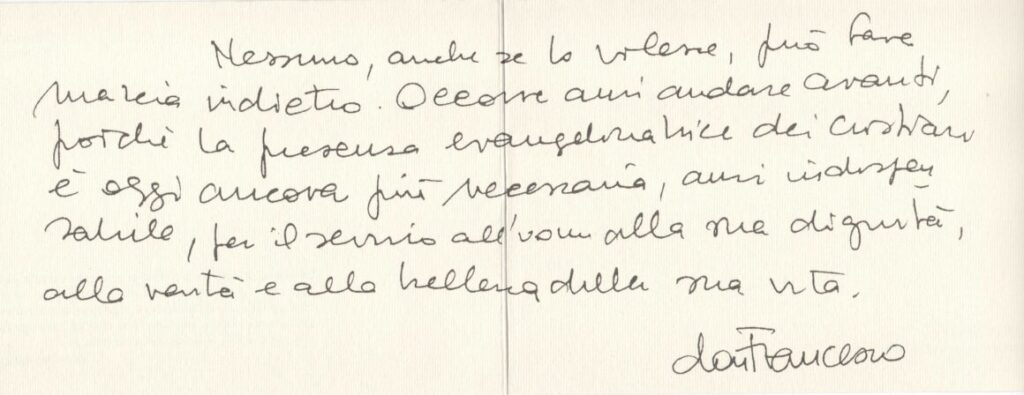 Nessuno, anche se lo volesse, può fare
marcia indietro. Occorre anzi andare avanti,
poichè la presenza evangelizzatrice dei cristiani
è oggi ancora più necessaria, anzi indispen
sabile, per il servizio all'uomo alla sua dignità,
alla verità e alla bellezza della sua vita.
don Francesco